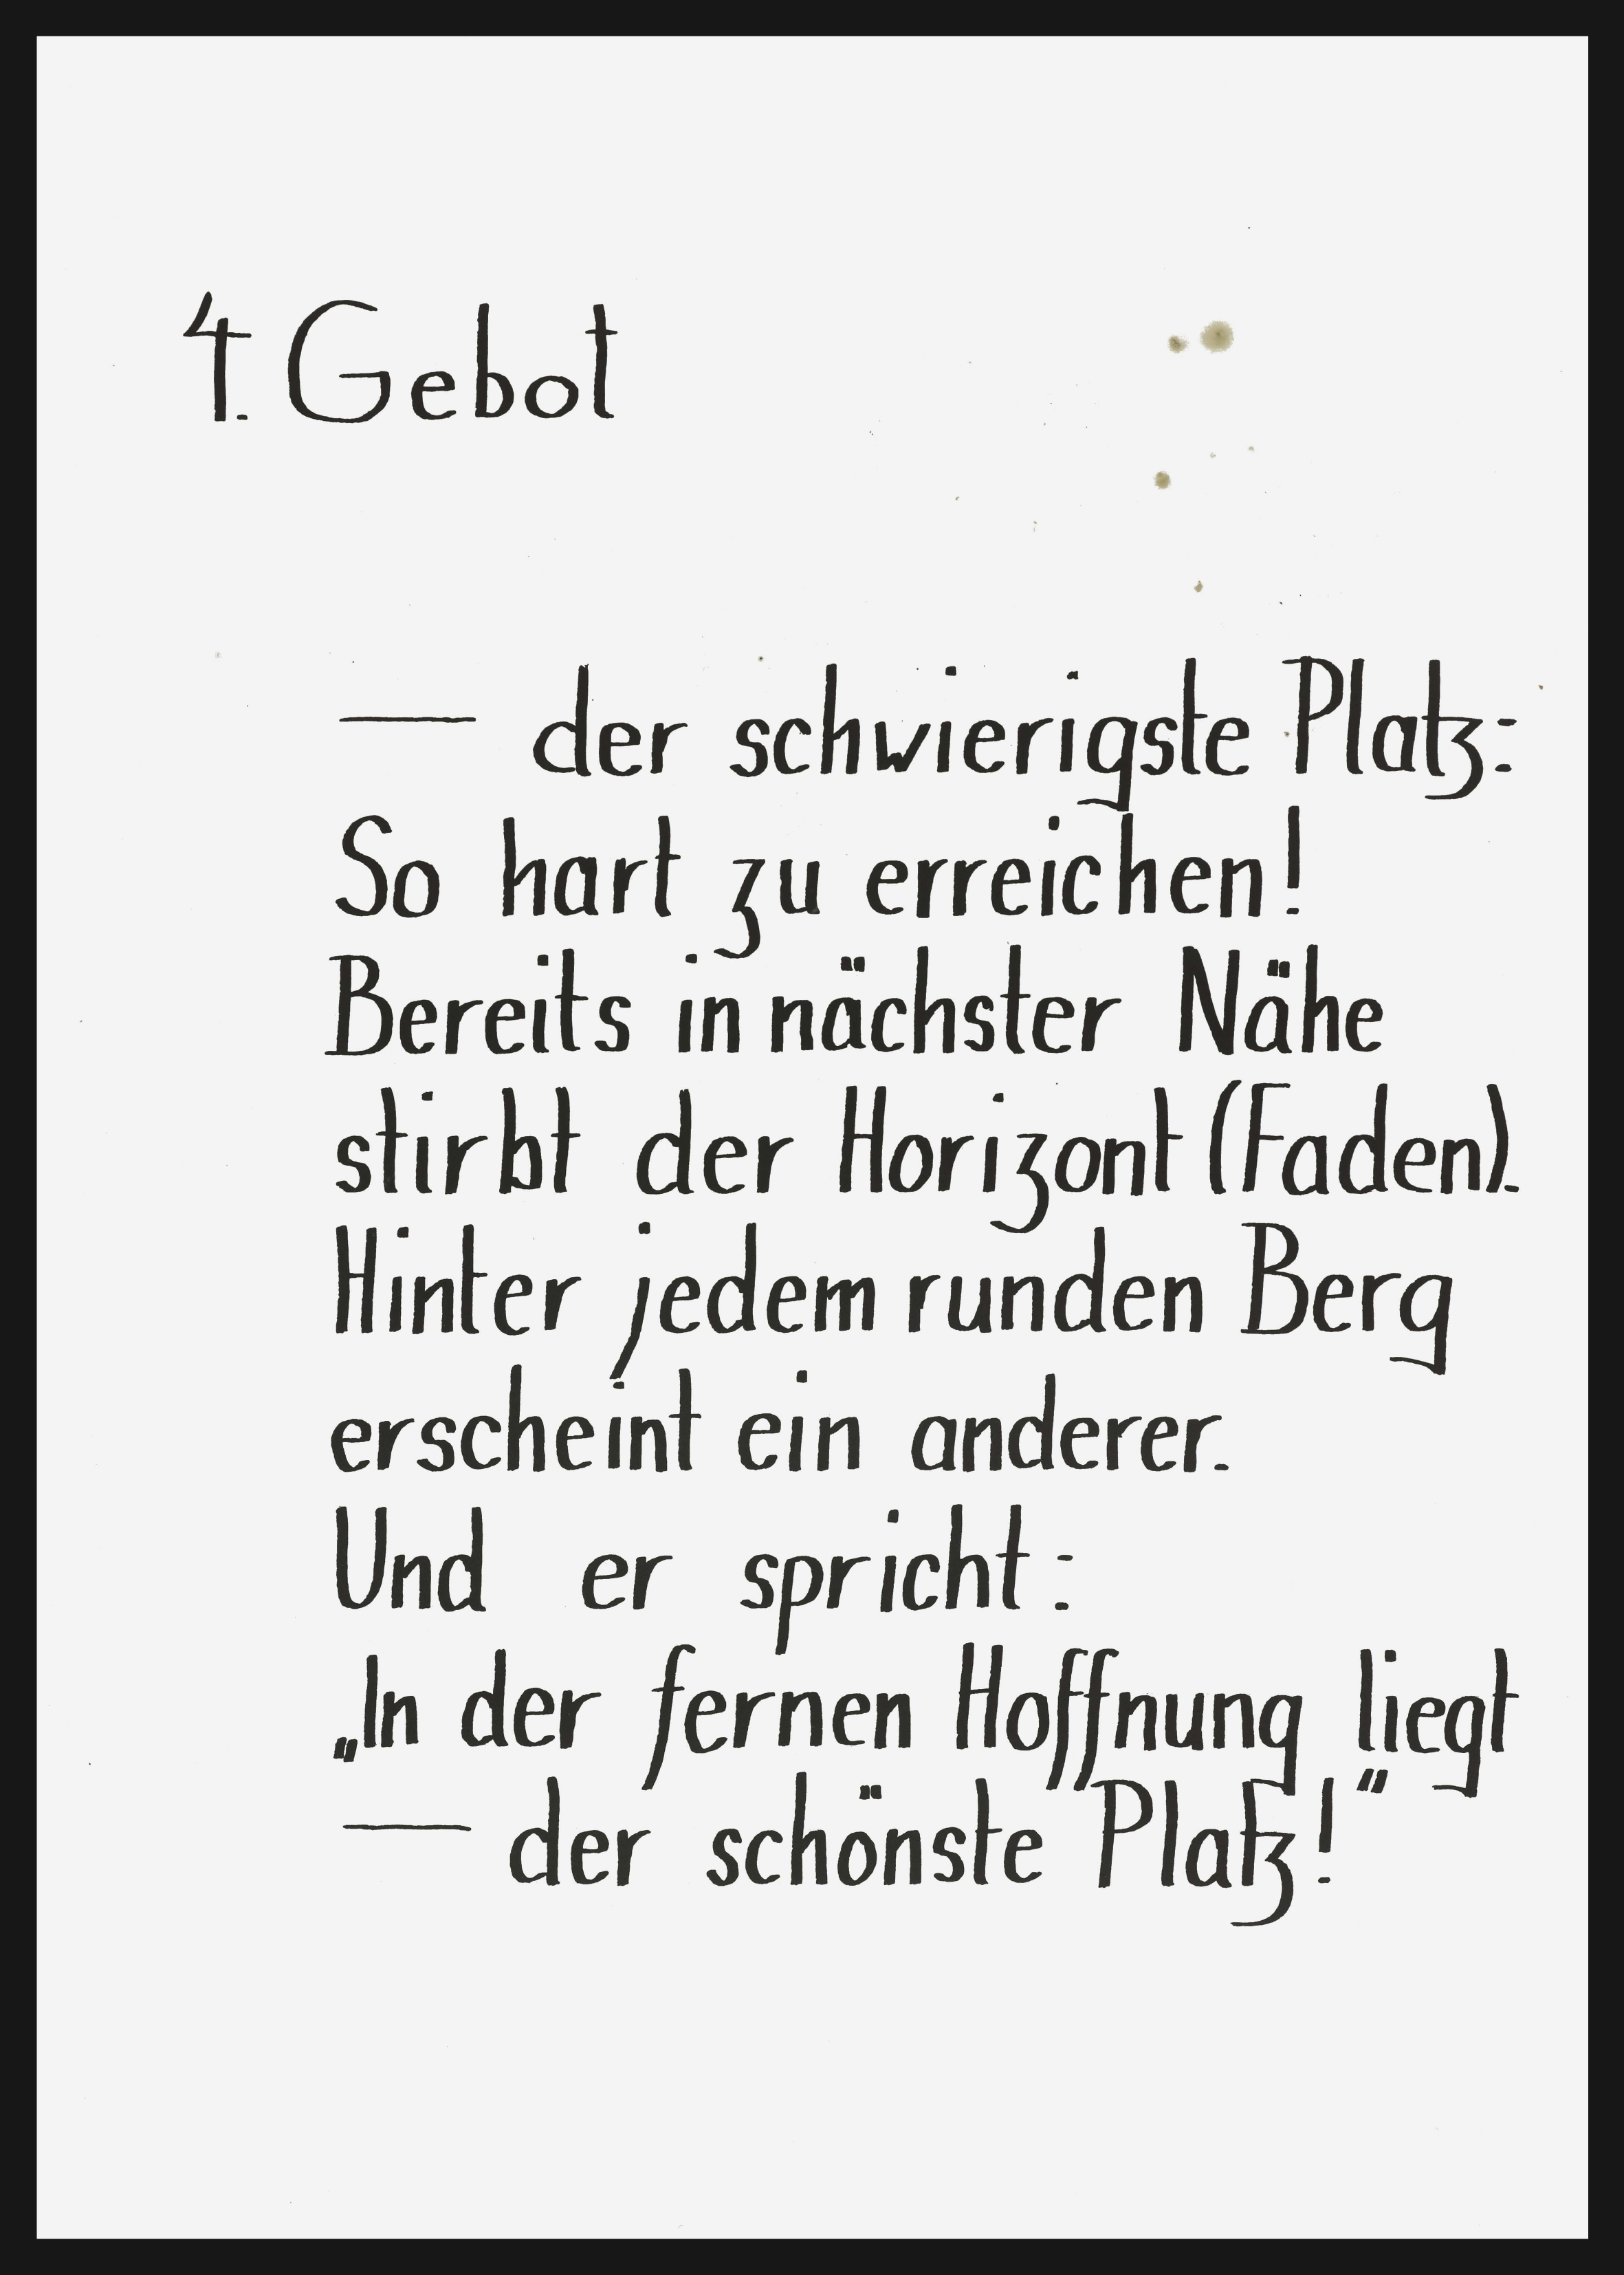 4. Gebot
— der schwierigste Platz:
So hart zu erreichen!
Bereits in nächster Nähe
stirbt der Horizont (Faden).
Hinter jedem runden Berg
erscheint ein anderer.
Und er spricht:
„In der fernen Hoffnung liegt
— der schönste Platz!“